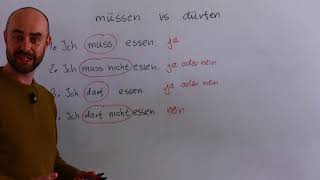 müssen vs dürfen
1. Ich muss essen. ja
2. Ich muss nicht essen. ja oder nein
3. Ich darf essen. ja oder nein
4. Ich darf nicht essen. nein